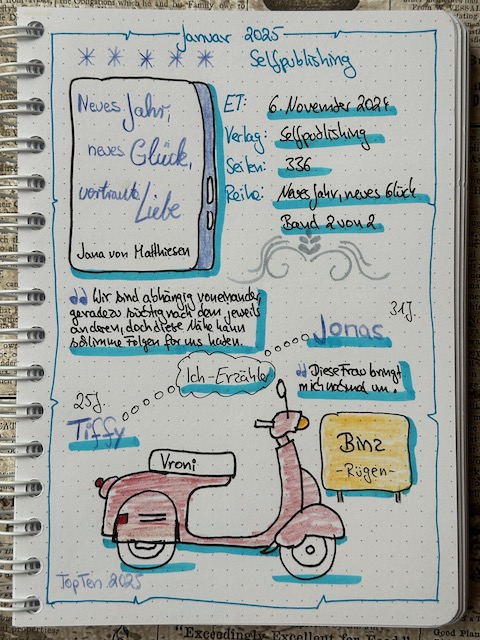 Januar 2025
Selfpublishing
Neues Jahr,
neues Glück,
vertraute
Liebe
Jana von Matthiesen
ET: 6. November 2024
Verlag: Selfpublishing
Seiten: 336
Reihe: Neues Jahr, neues Glück
Band 2 von 2
Wir sind abhängig voneinander,
geradezu süchtig nach dem jeweils
anderen, doch diese Nähe kann
schlimme Folgen für uns haben.
31J.
Jonas
Ich-Erzähler
Diese Frau bringt
mich nochmal um.
25J.
Tiffy
Vroni
Binz
-Rügen-
TopTen 2025
"Exceedingly Excellent for
Good Plan